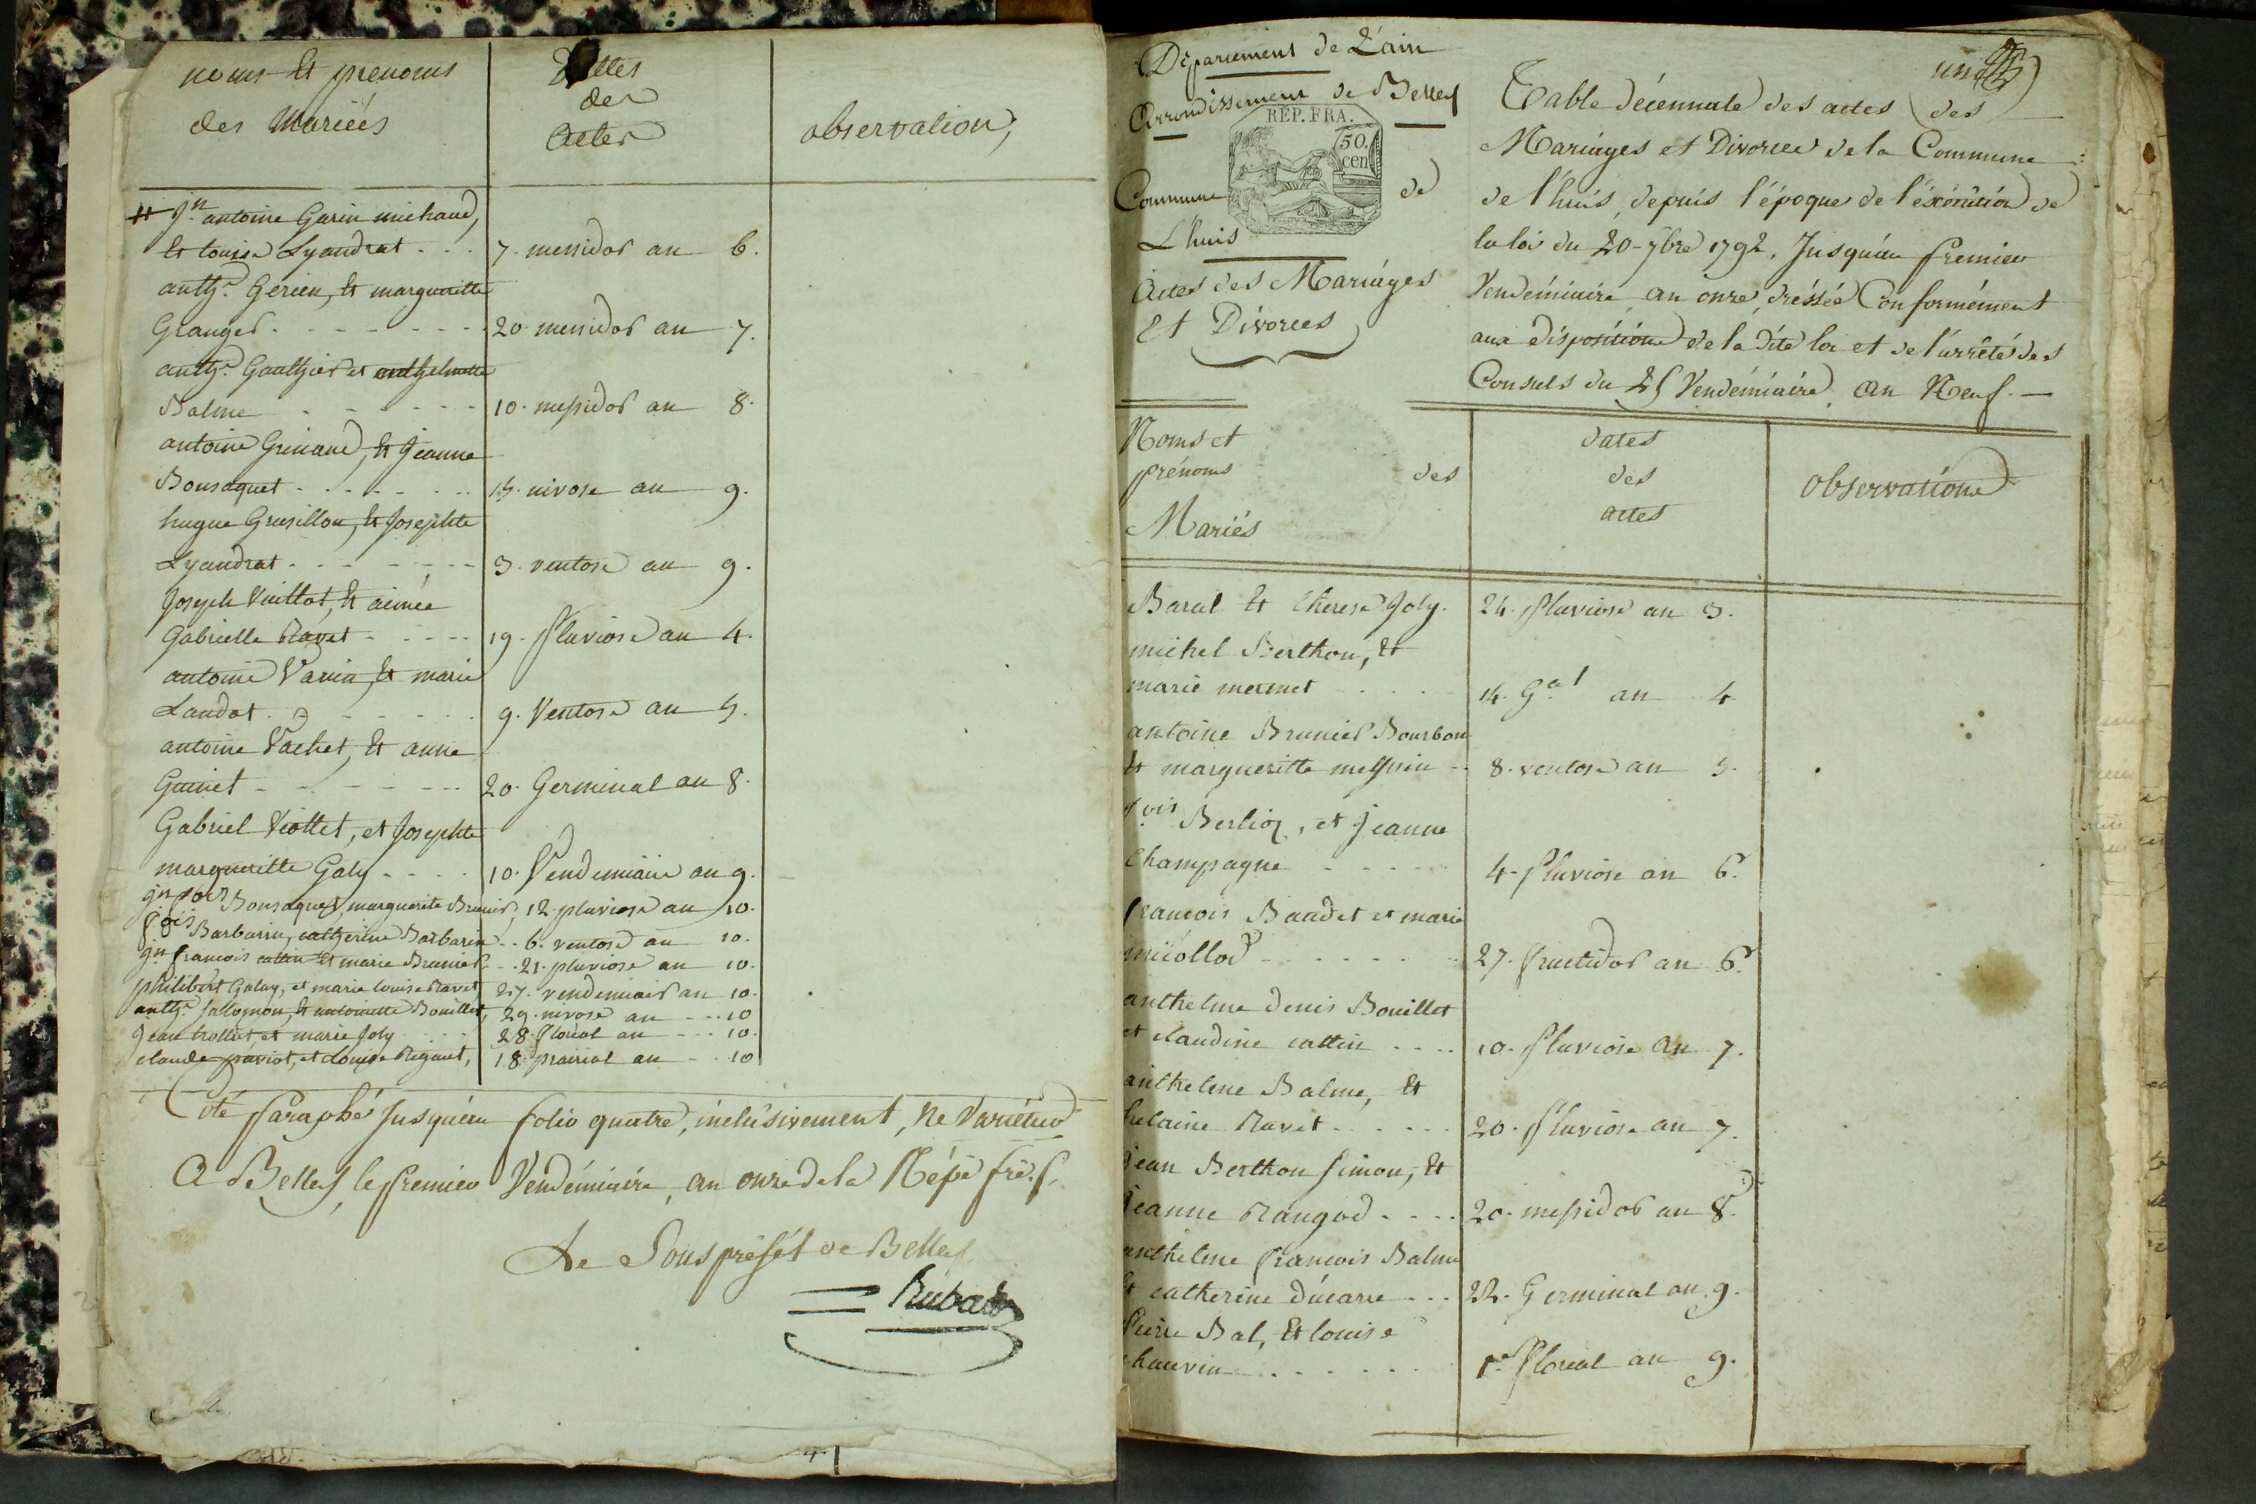 noms et prenoms
des Mariées
Dattes
des
Actes
observation,
Jn antoine Garin michaud,
et louise Lyandrat - - - 7. messidor an 6.
anthe. Gerien, et margueritte
Granger - - - - - - - 20 messidor an 7.
anthe. Gauthier et anthelmette
Balme - - - - - - 10. messidor an 8.
antoine Grinand, et Jeanne
Bonsaquet - - - - - - 15. nivose an 9.
hugue Grusillon, et Josephte
Lyandrat - - - - - - - 3. ventose an 9.
Joseph Vuillot, et aimée
Gabrielle Ravet - - - - - 19. Pluviose an 4.
antoine Varin, et marie
Landot - - - - - - 9. Ventose an 5.
antoine Vachet, et anne
Guinet - - - - - - - 20. Germinal an 8.
Gabriel Viollet, et Josephte
margueritte Galy - - - - 10. Vendemiaire an 9.
Jn Bonsaquet, marguerite Brunier, 12 pluviose an 10.
fois Barbarin, catherine Barbarin - - 6. ventose an 10.
Jn francois cattin et marie Brunier - - 21. pluviose an 10.
philibert Galay, et marie louise Ravet 27. vendemiair an 10.
anthe. Sallomon, et antoinette Bouillet, 29. nivose an - - - 10
Jean trollut, et marie Joly 28 floréal an - - - 10.
claude praviot, et Louise Rigaut, 18 prairial an - - 10
Coté Paraphé Jusqu'au folio quatre, inclusivement, Ne Varietur
A Belley, le Premier Vendémiaire, an onze de la Répe. frse.
Le Sous préfét de Belley
Rubat
Département de L'ain
Arrondissement de Belley
RÉP. FRA.
50.
cen
Commune de
L'huis
Actes des Mariages
Et Divorces
un
Table décennale des actes des
Mariages et Divorces de la Commune
de l'huis, depuis l'époque de l'éxécution de
la loi du 20 - 7bre 1792, Jusqu'au premier
Vendémiaire an onze, dréssée Conformément
aux dispositions de la dite loi et de l'arrêté des
Consuls du 25 Vendémiaire, an Neuf. —
Noms et
prénoms des
Mariés
dates
des
actes
observations
Baral et therese Joly. 24. Pluviose an 3.
michel Berthon, et
marie mermet - - - - 14. Gal an 4
antoine Brunier Bourbon
et margueritte - - 8. ventose an 5.
fois Berlioz, et Jeanne
Champagne - - - - - 4. Pluviose an 6.
francois Baudet et marie
- - - - - - 27. fructidor an 6.
anthelme denis Bouillet
et claudine cattin - - - - 10. Pluviose an 7.
anthelme Balme, et
helaine Ravet - - - - - 20. Pluviose an 7.
Jean Berthon Simon, et
Jeanne Rangod - - - - 20. messidor an 8.
anthelme francois Balme
et catherine ducarre - - - 22. Germinal an 9.
Pierre Bal, Et louise
chauvin - - - - - - 1er floréal an 9.